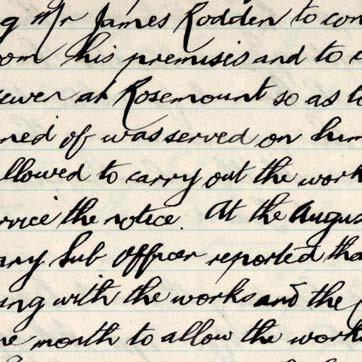 g Mr James Rodden to con
om his premises and to
ewer at Rosemount so as t
ned of was served on him
llowed to carry out the work
rvice the notice. At the Augus
ary Sub Officer reported tha
ing with the works and the
ne month to allow the work